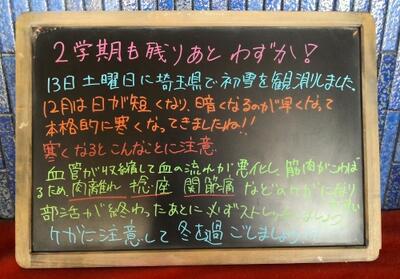 2学期も残りあとわずか!
13日土曜日に埼玉県で初雪を観測しました。
12月は日が短くなり、暗くなるのが早くなって
本格的に寒くなってきましたね!!
寒くなるとこんなことに注意
血管が収縮して血の流れが悪化し、筋肉がこわば
るため、肉離れ 捻座 関節痛 などのケガになり
やすい
部活が終わったあとに必ずストレッチしましょう
ケガに注意して冬を過ごしましょう